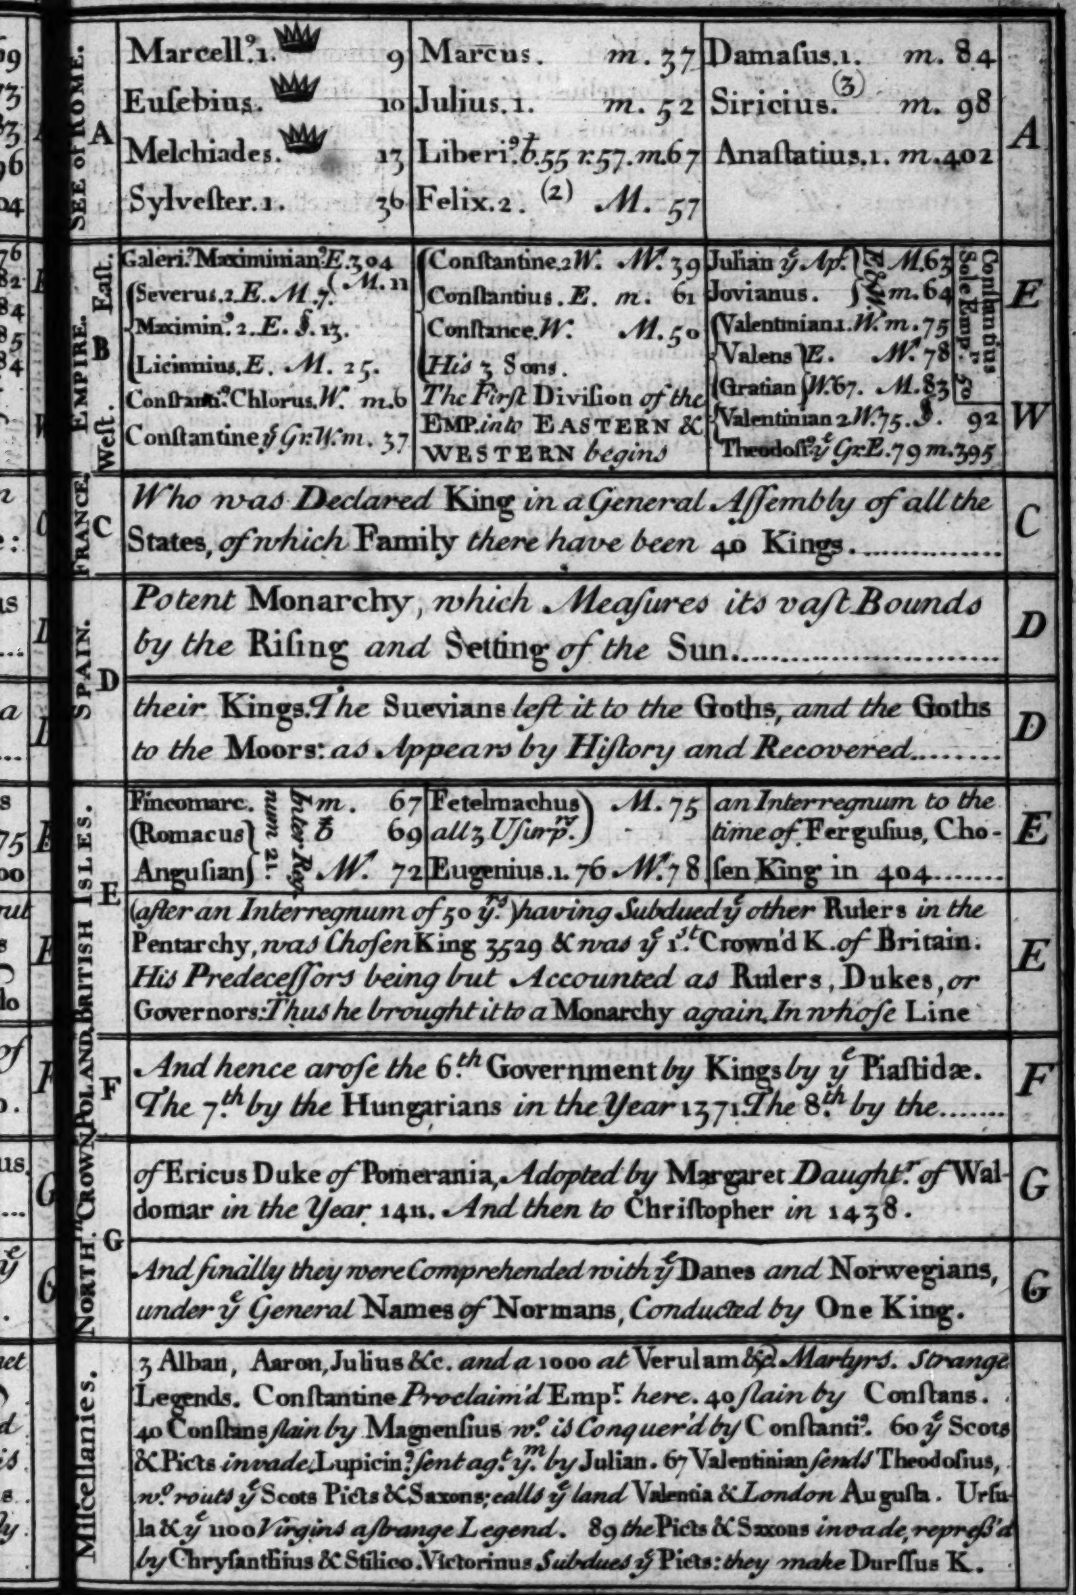 SEE of ROME.
A
Marcellꝰ.1. 9
Euſebius. 10
Melchiades. 13
Sylveſter.1. 36
Marcus. m. 37
Julius.1. m. 52
Liberiꝰ.b.55 r.57.m.67
Felix.2. (2) M. 57
Damaſus.1. m. 84
Siricius. (3) m. 98
Anaſtatius.1. m.402
A
EMPIRE.
Eaſt.
B
Weſt.
Galeriꝰ. Maximinianꝰ.E.304
(M.11
Severus.2.E.M.7.
Maximinꝰ.2.E.§.13.
Licinnius.E. M. 25.
Conſtantiꝰ.Chlorus.W. m.6
Conſtantine yͤ Gr.W.m. 37
Conſtantine.2W. M. 39
Conſtantius.E. m. 61
Conſtance.W. M.50
His 3 Sons.
The Firſt Diviſion of the
EMP. into EASTERN &
WESTERN begins
Julian yͤ Ap. M.63
Jovianus. m.64
E.&W.
Valentinian.1.W.m.75
Valens E. M. 78
Gratian W.67. M.83
Valentinian 2.W.75.§. 92
Theodoſꝰ.yͤ Gr.E.79 m.395
Conſtantius
Sole Emp.r 50
E
W
FRANCE.
C
Who was Declared King in a General Aſſembly of all the
States, of which Family there have been 40 Kings.
C
SPAIN.
D
Potent Monarchy, which Meaſures its vaſt Bounds
by the Riſing and Setting of the Sun.
D
their Kings. The Suevians left it to the Goths, and the Goths
to the Moors: as Appears by Hiſtory and Recovered
D
BRITISH ISLES.
E
Fincomarc. m. 67
(Romacus 69
Anguſian M. 72
Inter Reg
num 21.
Fetelmachus M. 75
all 3 Uſurp.rs
Eugenius.1.76 M.78
an Interregnum to the
time of Ferguſius, Cho-
ſen King in 404
E
(after an Interregnum of 50 y.rs) having Subdued yͤ other Rulers in the
Pentarchy, was Choſen King 3529 & was yͤ 1.st Crown'd K. of Britain.
His Predeceſſors being but Accounted as Rulers, Dukes, or
Governors: Thus he brought it to a Monarchy again. In whoſe Line
E
POLAND.
F
And hence aroſe the 6.th Government by Kings by yͤ Piaſtidæ.
The 7.th by the Hungarians in the Year 1371. The 8.th by the
F
NORTH.rn CROWN.
G
of Ericus Duke of Pomerania, Adopted by Margaret Daught.r of Wal-
domar in the Year 1411. And then to Chriſtopher in 1438.
G
And finally they were Comprehended with yͤ Danes and Norwegians,
under yͤ General Names of Normans, Conducted by One King.
G
Miſcellanies.
3 Alban, Aaron, Julius &c. and a 1000 at Verulam &c. Martyrs. Strange
Legends. Conſtantine Proclaim'd Emp.r here. 40 ſlain by Conſtans.
40 Conſtans ſlain by Magnenſius w.o is Conquer'd by Conſtantiꝰ. 60 yͤ Scots
& Picts invade. Lupicinꝰ. ſent ag.t y.m by Julian. 67 Valentinian ſends Theodoſius,
w.o routs yͤ Scots Picts & Saxons; calls yͤ land Valentia & London Auguſta. Urſu-
la & yͤ 1100 Virgins a ſtrange Legend. 89 the Picts & Saxons invade, repreſs'd
by Chryſanthius & Stilico. Victorinus Subdues yͤ Picts: they make Durſſus K.